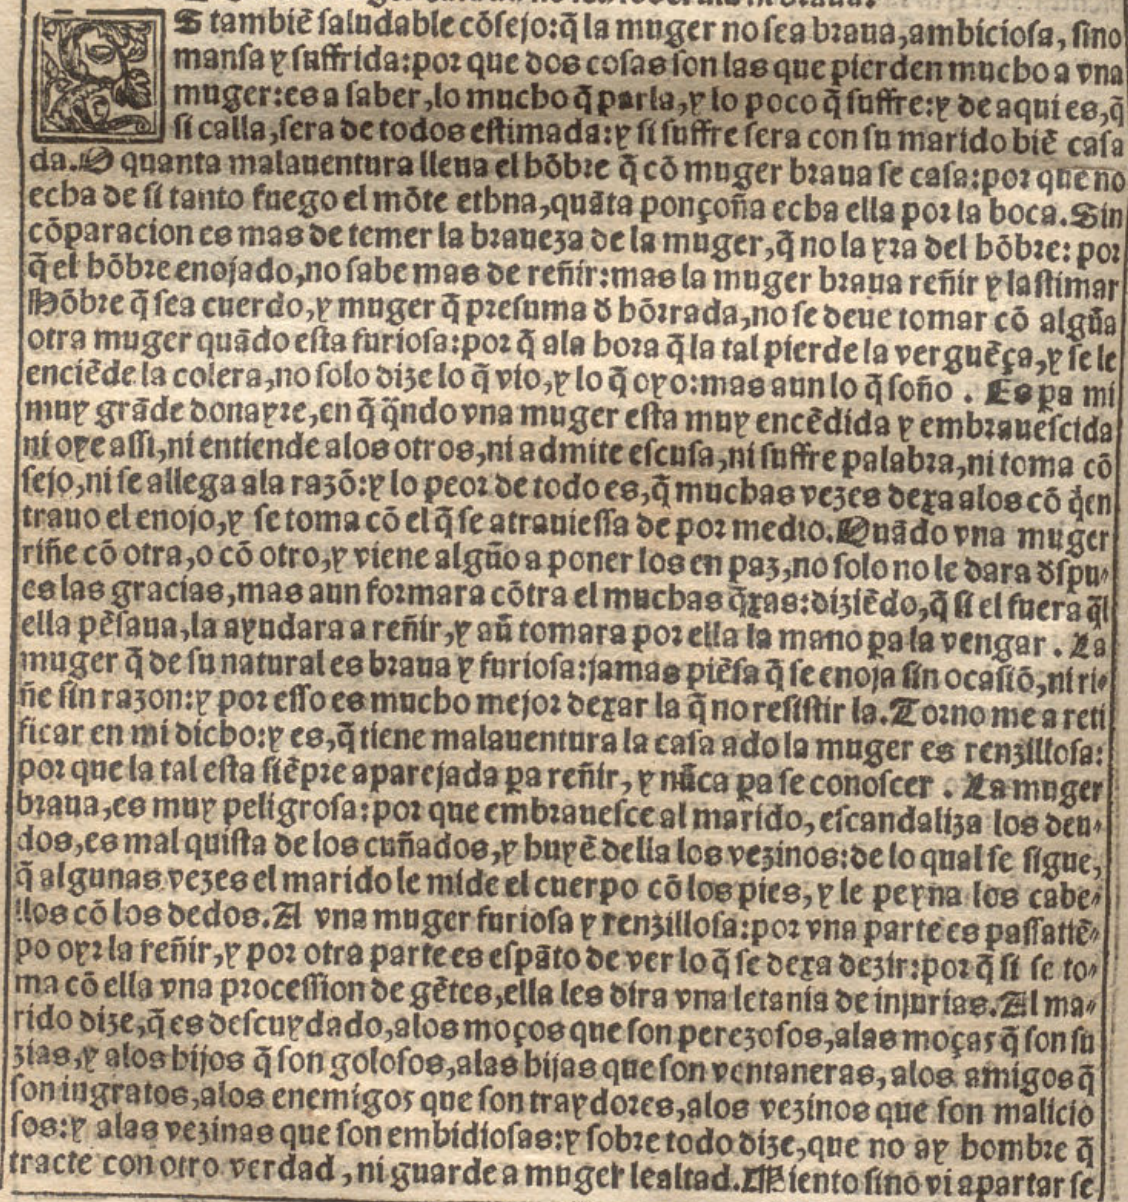 ES tambiẽ saludable cõsejo:q̃ la muger no sea braua,ambiciosa, sino
mansa y suffrida:por que dos cosas son las que pierden mucho a vna
muger:es a saber,lo mucho q̃ parla,y lo poco q̃ suffre:y de aqui es,q̃
si calla,sera de todos estimada:y si suffre sera con su marido biẽ casa
da.O quanta malauentura lleua el hõbre q̃ cõ muger braua se casa:por que no
echa de si tanto fuego el mõte ethna,quãta ponçoña echa ella por la boca.Sin
cõparacion es mas de temer la braueza de la muger,q̃ no la yra del hõbre: por
q̃ el hõbre enojado,no sabe mas de reñir:mas la muger braua reñir y lastimar
Hõbre q̃ sea cuerdo,y muger q̃ presuma d̃ hõrrada,no se deue tomar cõ algũa
otra muger quãdo esta furiosa:por q̃ ala hora q̃ la tal pierde la verguẽça,y se le
enciẽde la colera,no solo dize lo q̃ vio,y lo q̃ oyo:mas aun lo q̃ soño . Es ꝑa mi
muy grãde donayre,en q̃ q̃ndo vna muger esta muy encẽdida y embrauescida
ni oye assi,ni entiende alos otros,ni admite escusa,ni suffre palabra,ni toma cõ
sejo,ni se allega ala razõ:y lo peor de todo es,q̃ muchas vezes dexa alos cõ q̃en
trauo el enojo,y se toma cõ el q̃ se atrauiessa de por medio.Quãdo vna muger
riñe cõ otra,o cõ otro,y viene algũo a poner los en paz,no solo no le dara d̃spu-
es las gracias,mas aun formara cõtra el muchas q̃xas:diziẽdo,q̃ si el fuera q̃l
ella pẽsaua,la ayudara a reñir,y aũ tomara por ella la mano ꝑa la vengar . La
muger q̃ de su natural es braua y furiosa:jamas piẽsa q̃ se enoja sin ocasiõ,ni ri-
ñe sin razon:y por esso es mucho mejor dexar la q̃ no resistir la.Torno me a reti
ficar en mi dicho:y es,q̃ tiene malauentura la casa ado la muger es renzillosa:
por que la tal esta siẽpre aparejada ꝑa reñir, y nũca ꝑa se conoscer . La muger
braua,es muy peligrosa:por que embrauesce al marido, escandaliza los deu-
dos,es mal quista de los cuñados,y huyẽ della los vezinos:de lo qual se sigue,
q̃ algunas vezes el marido le mide el cuerpo cõ los pies, y le peyna los cabe-
llos cõ los dedos.A vna muger furiosa y renzillosa:por vna parte es passatiẽ-
po oyr la reñir,y por otra parte es espãto de ver lo q̃ se dexa dezir:por q̃ si se to-
ma cõ ella vna procession de gẽtes,ella les dira vna letania de injurias.Al ma-
rido dize,q̃ es descuydado,alos moços que son perezosos,alas moças q̃ son su
zias,y alos hijos q̃ son golosos,alas hijas que son ventaneras, alos amigos q̃
son ingratos,alos enemigos que son traydores,alos vezinos que son malicio
sos:y alas vezinas que son embidiosas:y sobre todo dize,que no ay hombre q̃
tracte con otro verdad, ni guarde a muger lealtad.Miento sino vi apartar se